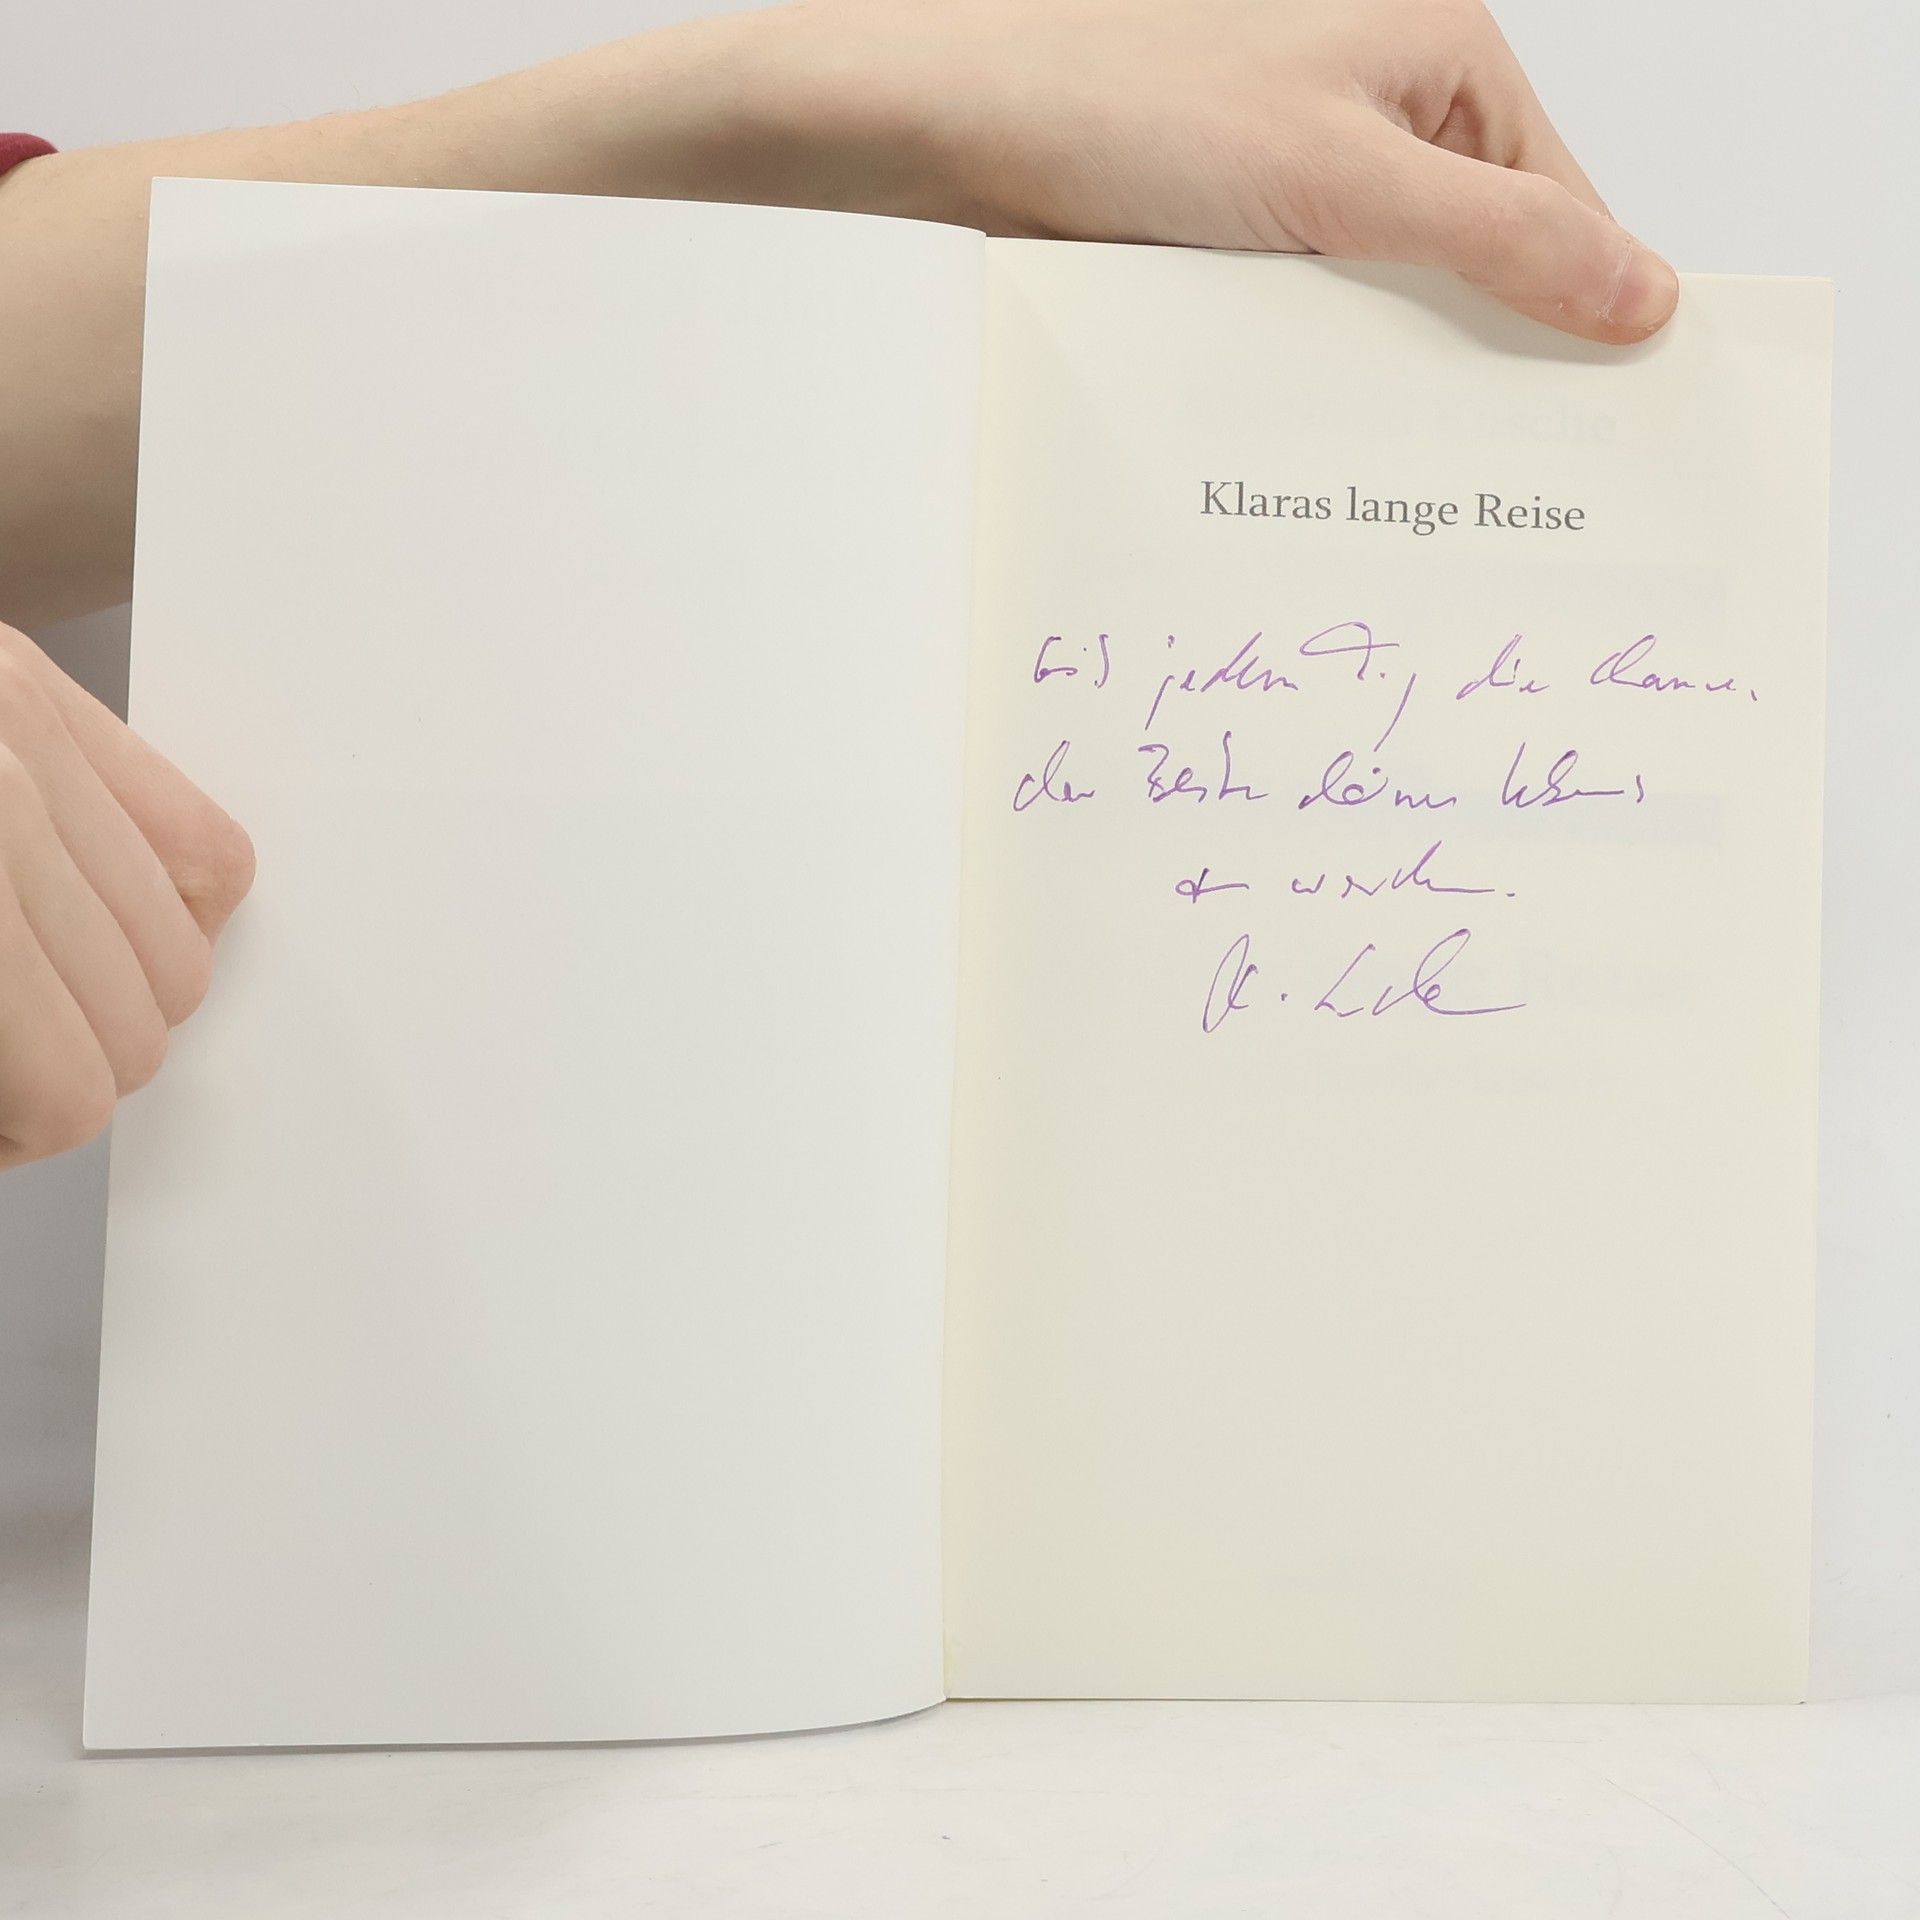 Klaras lange Reise
Gib jedem Tag die Chance,
der Beste deines Lebens
zu werden.